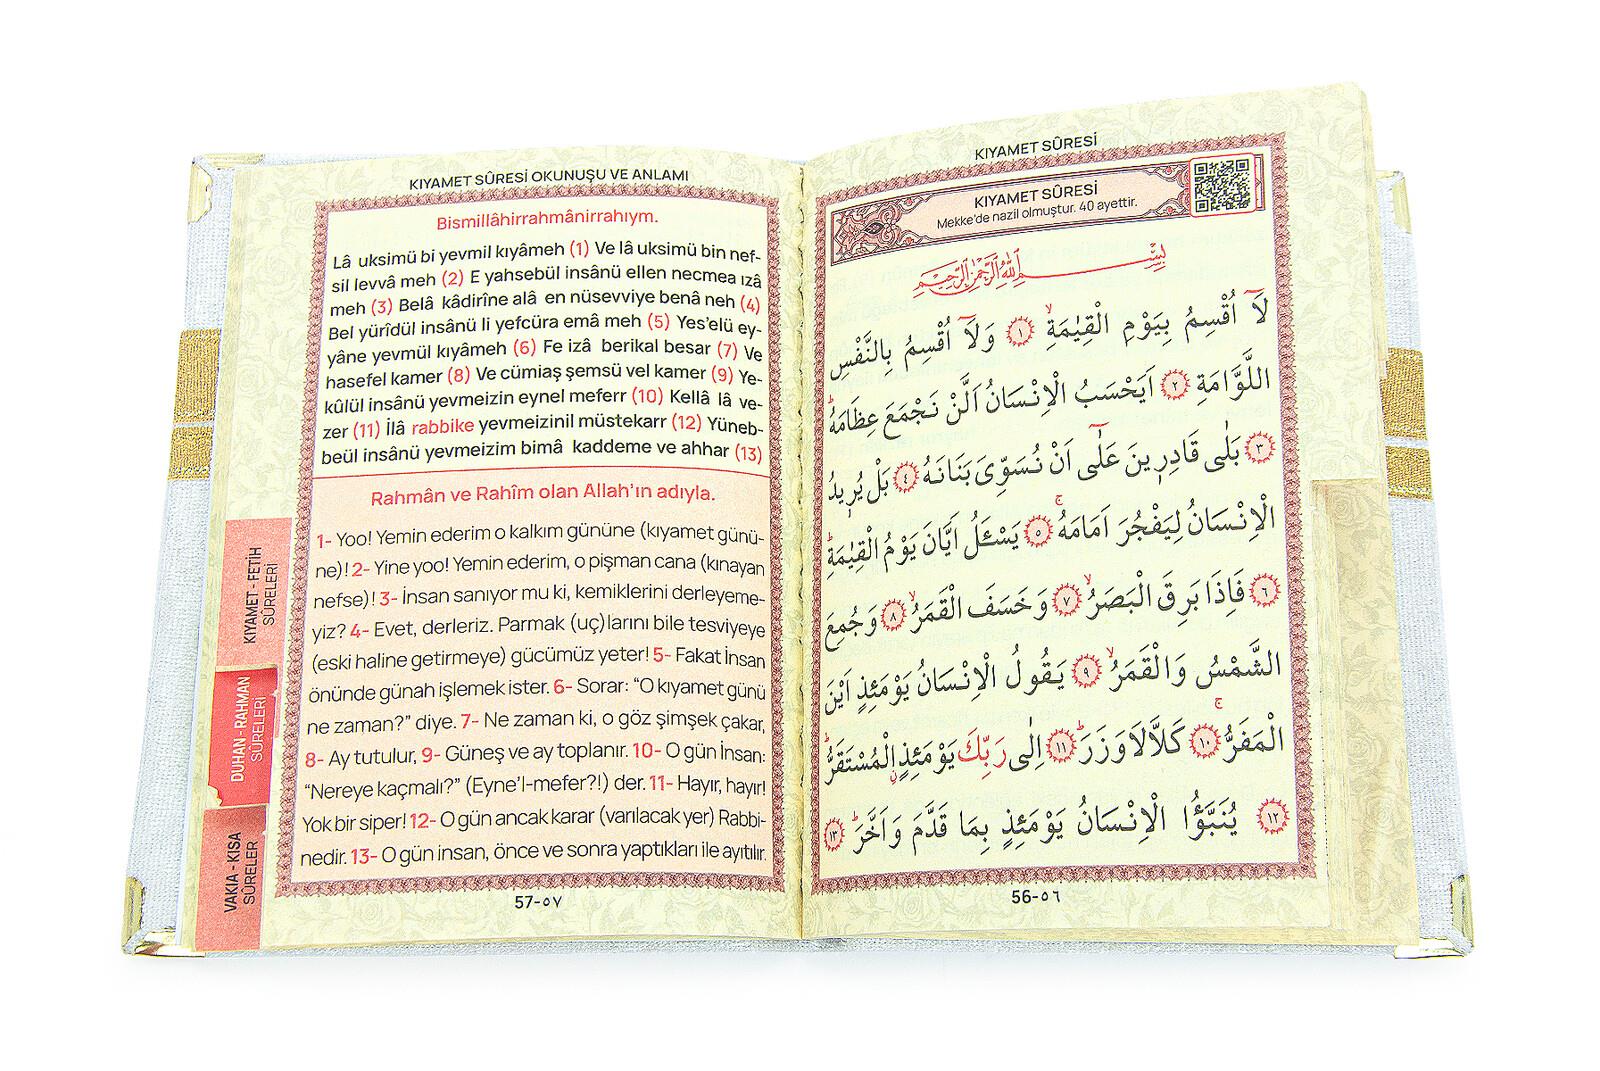 KIYAMET SÛRESİ OKUNUŞU VE ANLAMI
Bismillâhirrahmânirrahıym.
Lâ uksimü bi yevmil kıyâmeh (1) Ve lâ uksimü bin nef-
sil levvâ meh (2) E yahsebül insânü ellen necmea ızâ
meh (3) Belâ kâdirîne alâ en nüsevviye benâ neh (4)
Bel yürîdül insânü li yefcüra emâ meh (5) Yes'elü ey-
yâne yevmül kıyâmeh (6) Fe izâ berikal besar (7) Ve
hasefel kamer (8) Ve cümiaş şemsü vel kamer (9) Ye-
kûlül insânü yevmeizin eynel meferr (10) Kellâ lâ ve-
zer (11) İlâ rabbike yevmeizinil müstekarr (12) Yüneb-
beül insânü yevmeizim bimâ kaddeme ve ahhar (13)
Rahmân ve Rahîm olan Allah'ın adıyla.
1- Yoo! Yemin ederim o kalkım gününe (kıyamet günü-
ne)! 2- Yine yoo! Yemin ederim, o pişman cana (kınayan
nefse)! 3- İnsan sanıyor mu ki, kemiklerini derleyeme-
yiz? 4- Evet, derleriz. Parmak (uç)larını bile tesviyeye
(eski haline getirmeye) gücümüz yeter! 5- Fakat İnsan
önünde günah işlemek ister. 6- Sorar: “O kıyamet günü
ne zaman?” diye. 7- Ne zaman ki, o göz şimşek çakar,
8- Ay tutulur, 9- Güneş ve ay toplanır. 10- O gün İnsan:
“Nereye kaçmalı?” (Eyne'l-mefer?!) der. 11- Hayır, hayır!
Yok bir siper! 12- O gün ancak karar (varılacak yer) Rabbi-
nedir. 13- O gün insan, önce ve sonra yaptıkları ile ayıtılır.
57-٥٧
KIYAMET - FETİH
SÛRELERİ
DUHAN - RAHMAN
SÛRELERİ
VAKIA - KISA
SÛRELER
KIYAMET SÛRESİ
KIYAMET SÛRESİ
Mekke'de nazil olmuştur. 40 ayettir.
بِسْمِ اللّٰهِ الرَّحْمٰنِ الرَّحِيمِ
لَٓا اُقْسِمُ بِيَوْمِ الْقِيٰمَةِۙ ﴿١﴾ وَلَٓا اُقْسِمُ بِالنَّفْسِ
اللَّوَّامَةِ ﴿٢﴾ اَيَحْسَبُ الْاِنْسَانُ اَلَّنْ نَجْمَعَ عِظَامَهُۜ
﴿٣﴾ بَلٰى قَادِرٖينَ عَلٰٓى اَنْ نُسَوِّىَ بَنَانَهُ ﴿٤﴾ بَلْ يُرٖيدُ
الْاِنْسَانُ لِيَفْجُرَ اَمَامَهُۚ ﴿٥﴾ يَسْـَٔلُ اَيَّانَ يَوْمُ الْقِيٰمَةِۜ
﴿٦﴾ فَاِذَا بَرِقَ الْبَصَرُۙ ﴿٧﴾ وَخَسَفَ الْقَمَرُۙ ﴿٨﴾ وَجُمِعَ
الشَّمْسُ وَالْقَمَرُۙ ﴿٩﴾ يَقُولُ الْاِنْسَانُ يَوْمَئِذٍ اَيْنَ
الْمَفَرُّۚ ﴿١٠﴾ كَلَّا لَا وَزَرَۜ ﴿١١﴾ اِلٰى رَبِّكَ يَوْمَئِذٍۨ الْمُسْتَقَرُّۜ
﴿١٢﴾ يُنَبَّؤُا الْاِنْسَانُ يَوْمَئِذٍ بِمَا قَدَّمَ وَاَخَّرَۜ ﴿١٣﴾
56-٥٦